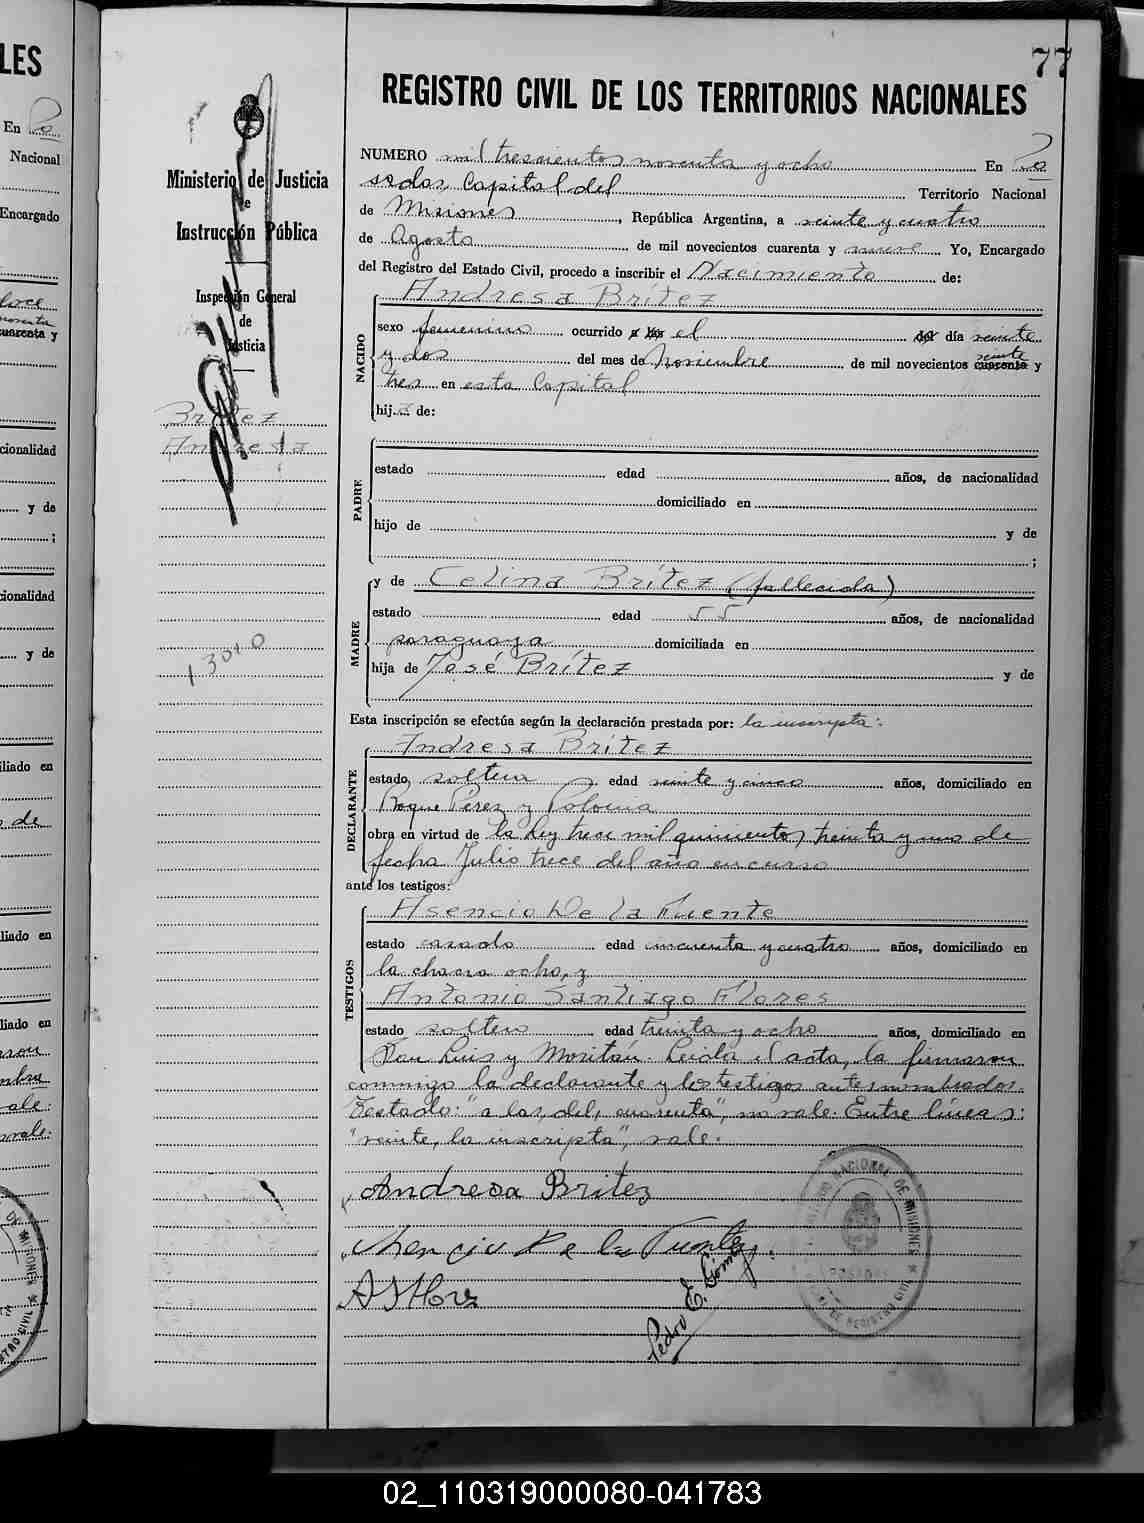 77
REGISTRO CIVIL DE LOS TERRITORIOS NACIONALES
Ministerio de Justicia
e
Instrucción Pública
Inspección General
de
Justicia
Britez
Andresa
13010
NUMERO mil trescientos noventa y ocho En Po
sadas, Capital del Territorio Nacional
de Misiones, República Argentina, a veinte y cuatro
de Agosto de mil novecientos cuarenta y nueve. Yo, Encargado
del Registro del Estado Civil, procedo a inscribir el Nacimiento de:
Andresa Britez
NACIDO
sexo femenino ocurrido a las el del día veinte
y dos del mes de Noviembre de mil novecientos cuarenta veinte y
tres en esta Capital
hija de:
PADRE
estado edad años, de nacionalidad
domiciliado en
hijo de y de
;
MADRE
y de Celina Britez (fallecida)
estado edad 55 años, de nacionalidad
paraguaya domiciliada en
hija de José Britez y de
Esta inscripción se efectúa según la declaración prestada por: la inscripta:
DECLARANTE
Andresa Britez
estado, soltera, edad veinte y cinco años, domiciliado en
Roque Perez y Polonia
obra en virtud de la ley trece mil quinientos treinta y uno de
fecha Julio trece del año en curso
ante los testigos:
TESTIGOS
Asencio De la Fuente
estado casado edad cincuenta y cuatro años, domiciliado en
la chacra ocho, y
Antonio Santiago Flores
estado soltero edad treinta y ocho años, domiciliado en
San Luis y Moritán. Leida el acta, la firmaron
conmigo la declarante y los testigos antes nombrados.
Testado: "a las, del, cuarenta", no vale. Entre líneas:
"veinte, la inscripta", vale.
Andresa Britez
Asencio De la Fuente
ASFlores
Pedro E. Gómez
REGISTRO CIVIL
02_110319000080-041783